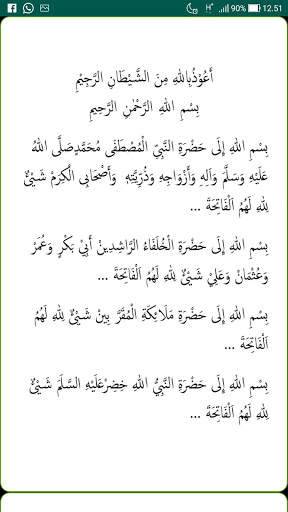 90% 12.51
أَعُوْذُ بِاللهِ مِنَ الشَّيْطَانِ الرَّجِيْمِ
بِسْمِ اللهِ الرَّحْمٰنِ الرَّحِيمِ
بِسْمِ اللهِ إِلَى حَضْرَةِ النَّبِيِّ الْمُصْطَفَى مُحَمَّدٍ صَلَّى اللهُ
عَلَيْهِ وَسَلَّمَ وَآلِهِ وَأَزْوَاجِهِ وَذُرِّيَّتِهِ وَأَصْحَابِي الْكِرَمْ شَيْئٌ
لِلهِ لَهُمُ اَلْفَاتِحَةَ ...
بِسْمِ اللهِ إِلَى حَضْرَةِ الْخُلَفَاءُ الرَّاشِدِيْنَ أَبِيْ بَكْرٍ وَعُمَرْ
وَعُثْمَانْ وَعَلِيْ شَيْئٌ لِلهِ لَهُمُ اَلْفَاتِحَةَ ...
بِسْمِ اللهِ إِلَى حَضْرَةِ مَلَائِكَةِ الْمُقَرَّ بِيْنَ شَيْئٌ لِلهِ لَهُمْ
اَلْفَاتِحَةَ ...
بِسْمِ اللهِ إِلَى حَضْرَةِ النَّبِيُّ اللهِ خِضِرْ عَلَيْهِ السَّلَمَ شَيْئٌ
لِلهِ لَهُمُ اَلْفَاتِحَةَ ...